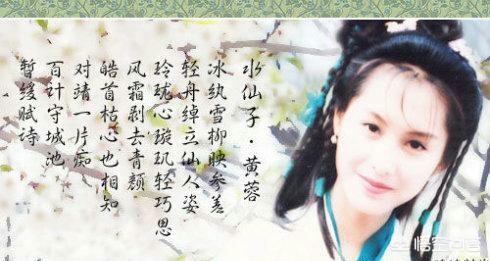 水仙子·黄蓉
冰纨雪柳映参差
轻舟绰立仙人姿
玲珑心璇玑轻巧思
风霜剥去青颜
皓首枯心也相知
对靖一片痴
百计守城池
暂缓赋诗
悟空问答